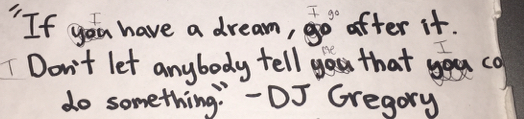 "If you I have a dream, go I go after it.
I Don't let anybody tell you me that you I co
do something." -DJ Gregory